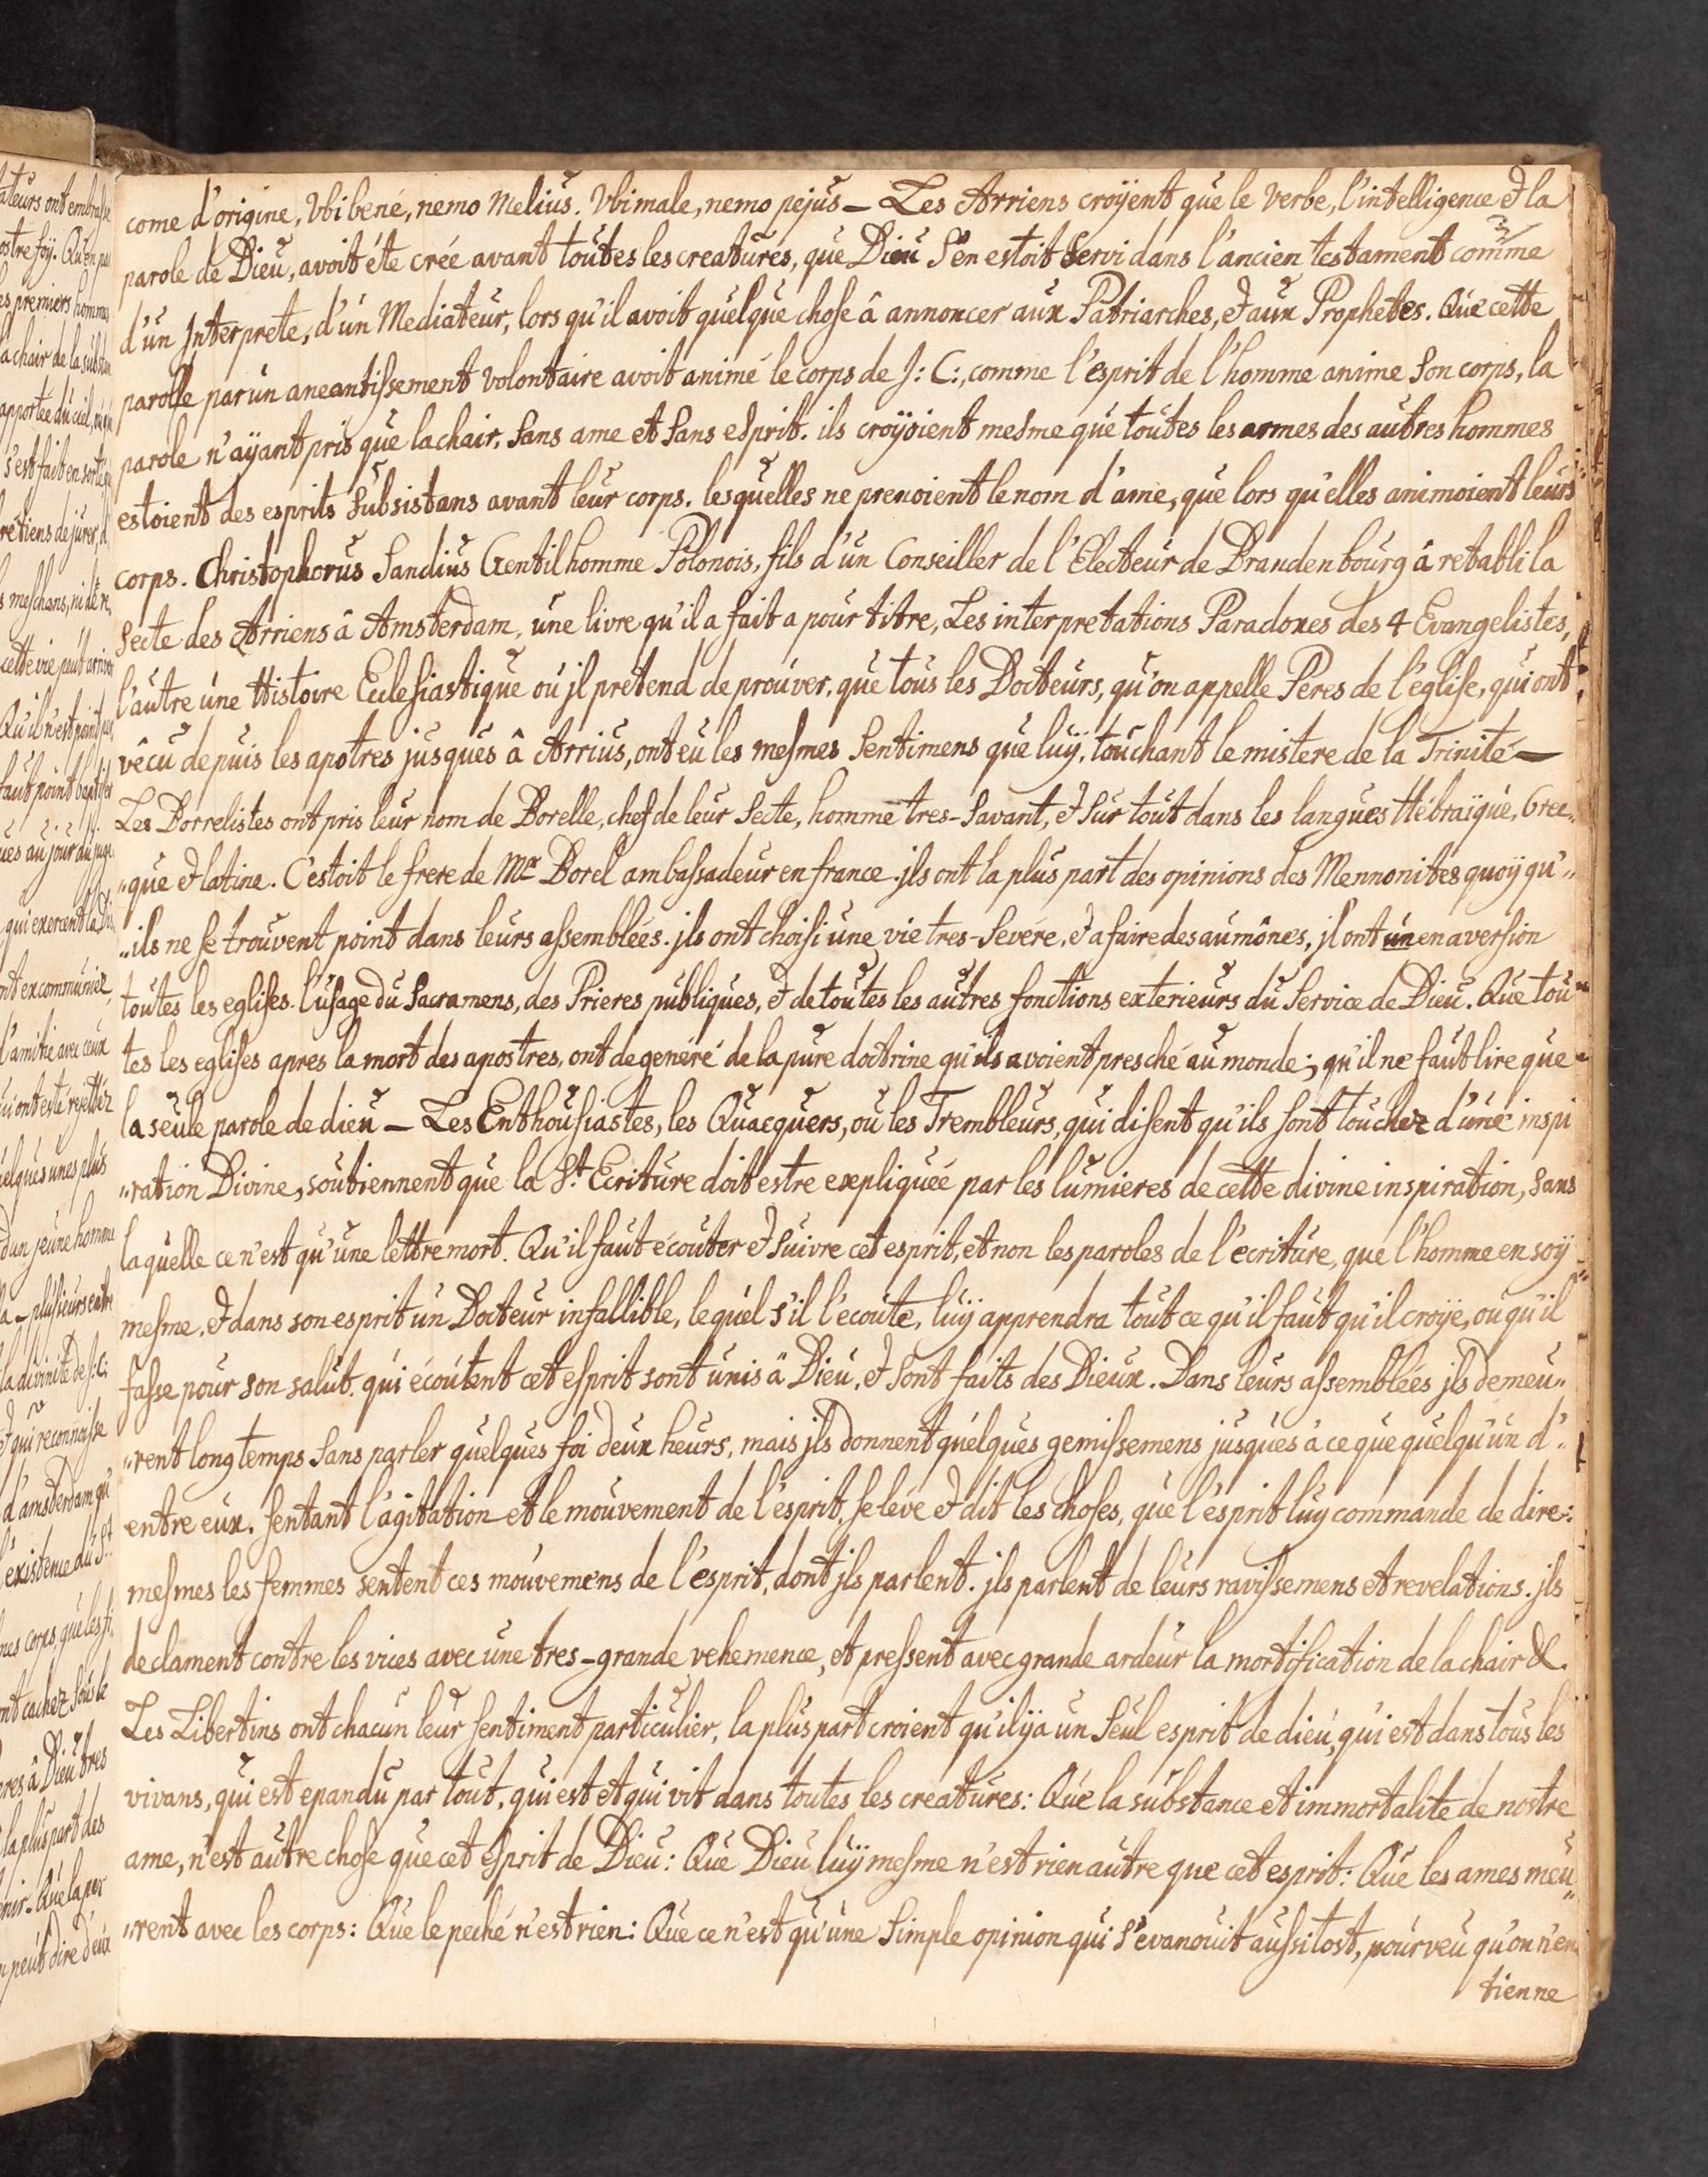 come d'origine, Vbi bene, nemo melius. Vbi male, nemo pejus — Les Arriens croÿent que le verbe, l'intelligence & la
parole de Dieu, avoit éte creé avant toutes les creatures, que Dieu s'en estoit servi dans l'ancien testament comme
d'un Interprete, d'un Mediateur, lors qu'il avoit quelque chose â annoncer aux Patriarches, & aux Prophetes. Que cette
parolle par un aneantissement volontaire avoit animé le corps de J: C:, comme l'esprit de l'homme anime son corps, la
parole n'aÿant pris que la chair, sans ame et sans esprit. ils croÿoient mesme que toutes les armes des autres hommes
estoient des esprits subsistans avant leur corps. lesquelles ne prenoient le nom d'ame, que lors qu'elles animoient leurs
corps. Christophorus Sandius Gentilhomme Polonois, fils d'un Conseiller de l'Electeur de Brandenbourg â retabli la
secte des Arriens â Amsterdam, une livre qu'il a fait a pour titre, Les interpretations Paradoxes des 4 Evangelistes,
l'autre une Histoire Ecclesiastique ou jl pretend de prouver, que tous les Docteurs, qu'on appelle Peres de l'eglise, qui ont
vêcu depuis les apotres jusques â Arrius, ont eu les mesmes sentimens que luÿ, touchant le mistere de la Trinité —
Les Borrelistes ont pris leur nom de Borelle, chef de leur secte, homme tres-savant, & sur tout dans les langues Hébraïque, Grec„
„que & latine. C'estoit le frere de Mr Borel ambassadeur en france. jls ont la plus part des opinions des Mennonites quoÿ qu'„
„ils ne se trouvent point dans leurs assemblées. jls ont choisi une vie tres-severe, & a faire des aumônes, jl ont un en aversion
toutes les eglises. l'usage du Sacramens, des Prieres publiques, & de toutes les autres fonctions exterieurs du Service de Dieu. Que tou„
tes les eglises apres la mort des apostres, ont degenéré de la pure doctrine qu'ils avoient presché au monde; qu'il ne faut lire que
la seule parole de dieu — Les Enthousiastes, les Quacquers, ou les Trembleurs, qui disent qu'ils sont touchez d'une inspi
„ration Divine, soutiennent que la St. Ecriture doit estre expliquée par les lumieres de cette divine inspiration, sans
laquelle ce n'est qu'une lettre mort. Qu'il faut ecouter & suivre cet esprit, et non les paroles de l'ecriture, que l'homme en soÿ
mesme, & dans son esprit un Docteur infallible, lequel s'il l'ecoute, luÿ apprendra tout ce qu'il faut qu'il croÿe, ou qu'il
fasse pour son salut. qui écoutent cet esprit sont unis â Dieu, & sont faits des Dieux. Dans leurs assemblées jls demeu„
„rent long temps sans parler quelques foi deux heurs, mais jls donnent quelques gemissemens jusques à ce que quelqu'un d'„
entre eux. sentant l'agitation et le mouvement de l'esprit, se léve & dit les choses, que l'esprit luy commande de dire:
mesmes les femmes sentent ces mouvemens de l'esprit, dont jls parlent. jls parlent de leurs ravissemens et revelations. jls
declament contre les vices avec une tres-grande vehemence, et pressent avec grande ardeur la mortification de la chair &.
Les Libertins ont chacun leur sentiment particulier, la plus part croient qu'il ÿa un seul esprit de dieu, qui est dans tous les
vivans, qui est epandu par tout, qui est et qui vit dans toutes les creatures: Que la substance et immortalite de nostre
ame, n'est autre chose que cet esprit de Dieu: Que Dieu luÿ mesme n'est rien autre que cet esprit: Que les ames meu„
„rent avec les corps: Que le peché n'est rien: Que ce n'est qu'une simple opinion qui s'evanouit aussi tost, pourveu qu'on n'en
tienne